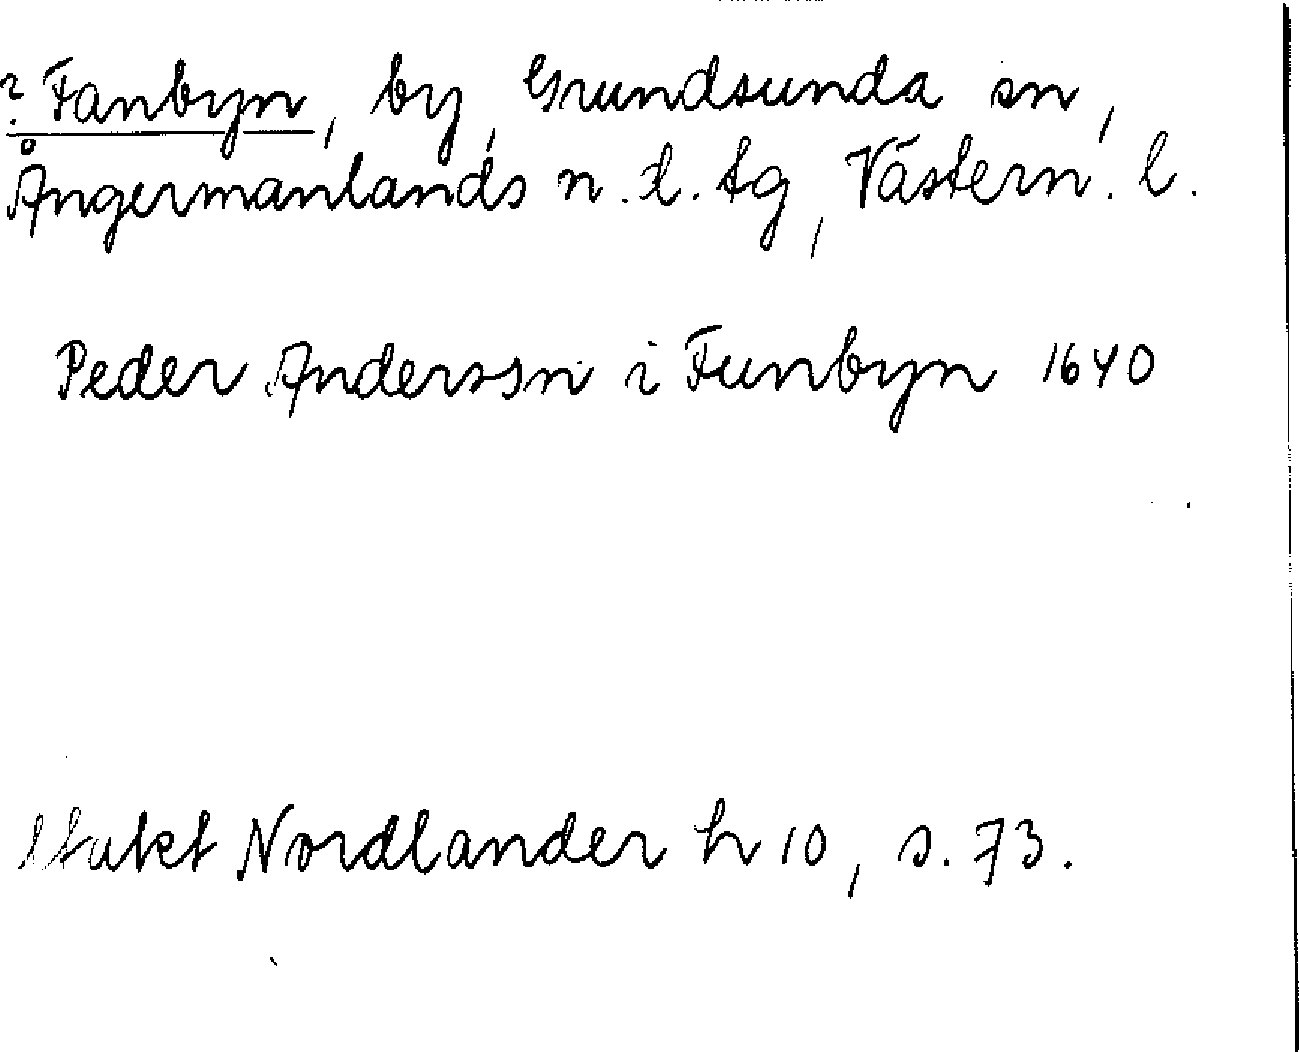 ? Fanbyn, by, Grundsunda sn,
Ångermanlands n. d. tg, Västern. l.
Peder Anderssn i Funbyn 1640
Nordlander h 10, s. 73.